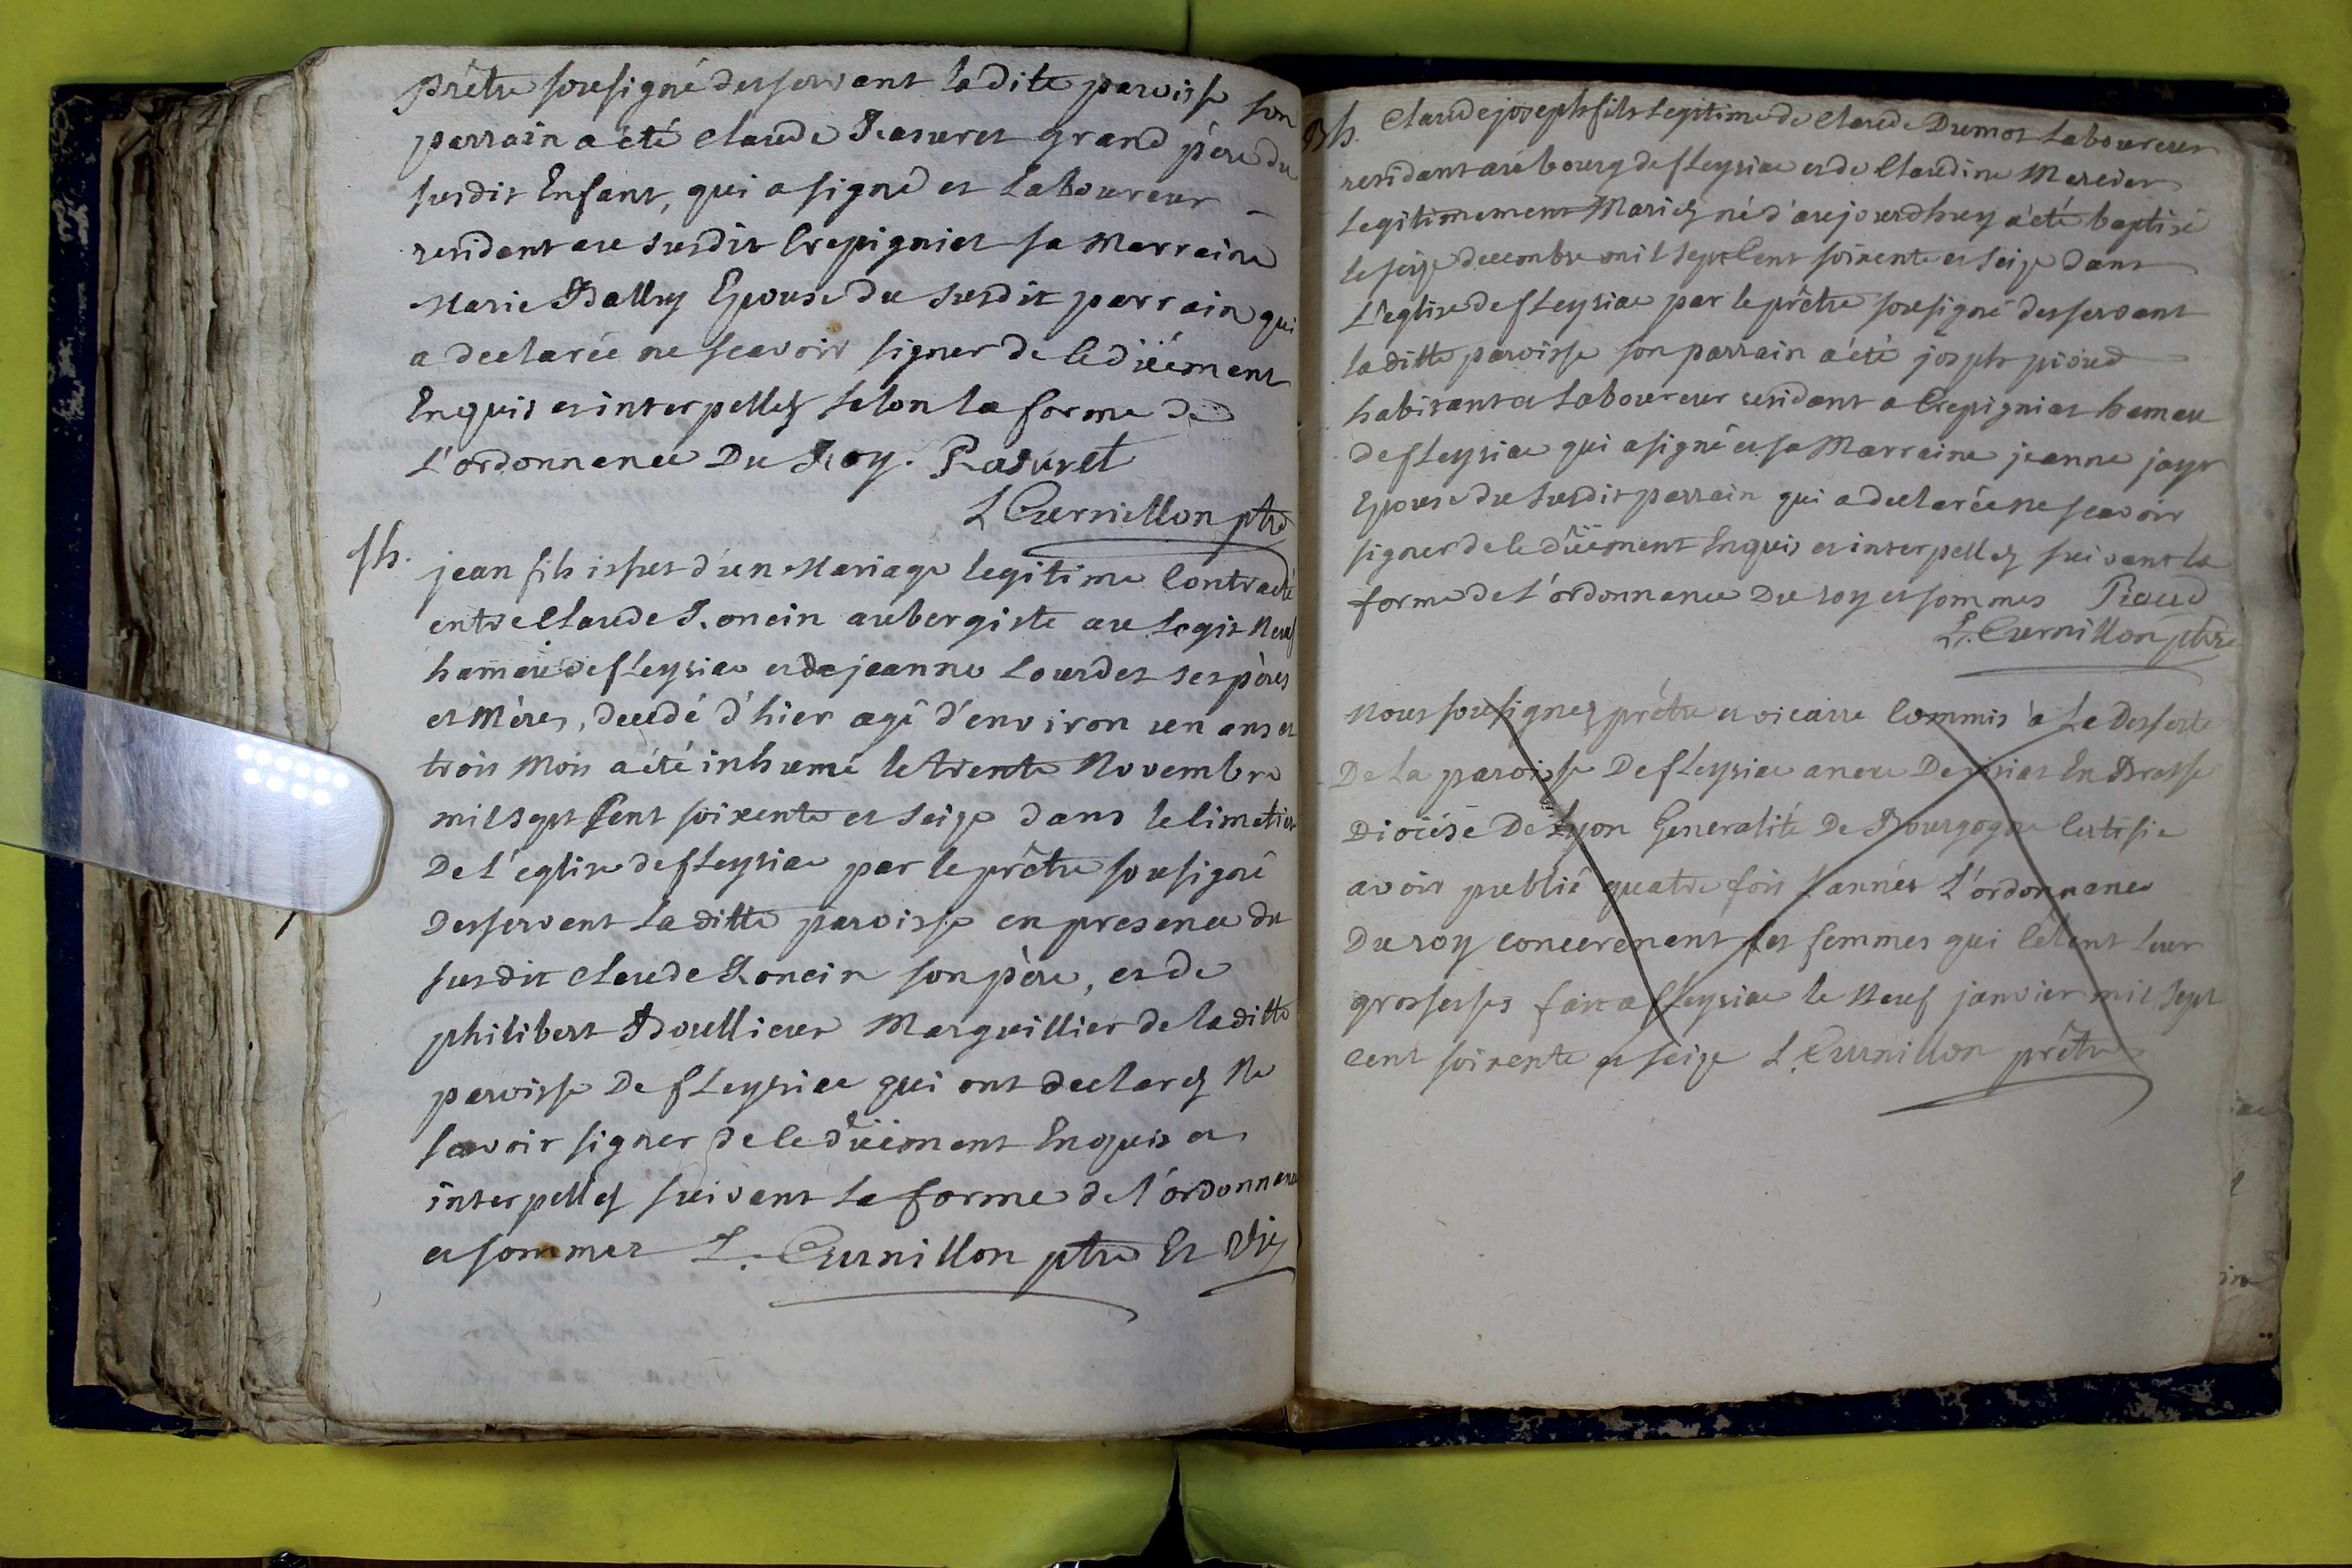 prêtre sousigné desservant ladite paroisse son
parrain a été claude Rasuret grand père du
susdit Enfant, qui a signé et Laboureur
residant au susdit Crepigniat sa Marraine
Marie Ballry Epouse du susdit parrain qui
a declarée ne scavoir signer de ce düement
Enquis et interpellez selon la forme de
L'ordonnance Du Roy. Rasuret
L Curnillon ptre
Sh. jean fils issus d'un Mariage legitime Contracté
entre Claude Roncin aubergiste au Logis Neuf
hameau de fleysiac et de jeanne Lourdet ses pères
et Mères, decedé d'hier agé d'environ un ans et
trois Mois a été inhumé le trente Novembre
mil sept Cent soixente et seize dans le cimetier
De L'eglise de fleysiac par le prêtre sousigné
Desservent La ditte paroisse en presence du
susdit claude Roncin son père, et de
philibert Boullieur Marguillier de la ditte
paroisse De fleysiac qui ont declarez Ne
scavoir signer de ce düement Enquis et
interpellez suivent la forme de l'ordonnance
et sommez L. Curnillon ptre Et Vic
Bh. Claude joseph fils Legitime de Claude Dumot Laboureur
residant au bourg de fleysiac et de Claudine Mercier
Legitimement Mariez né d'aujourdhuy a été baptisé
le seize decembre mil sept Cent soixente et seize dans
L'eglise de fleysiac par le prêtre sousigné desservant
la ditte paroisse son parrain a été joseph pioud
habitant et Laboureur residant a Crepigniat hameau
de fleysiac qui a signé et sa Marraine jeanne jayr
Epouse du susdit parrain qui a declarée ne scavoir
signer de ce düement Enquis et interpellez suivant la
forme de L'ordonnance Du roy et sommes Pioud
L. Curnillon ptre
Nous sousignez prêtre et vicaire Commis à La Desserte
De La paroisse De fleysiac En Bresse
Diocése De Lyon Generalité De Bourgogne Certifie
avoir publié quatre fois L'année L'ordonnance
Du roy concernent les femmes qui célent leur
grossesses fait a fleysiac le Neuf janvier mil sept
cent soixente et seize L. Curnillon prêtre